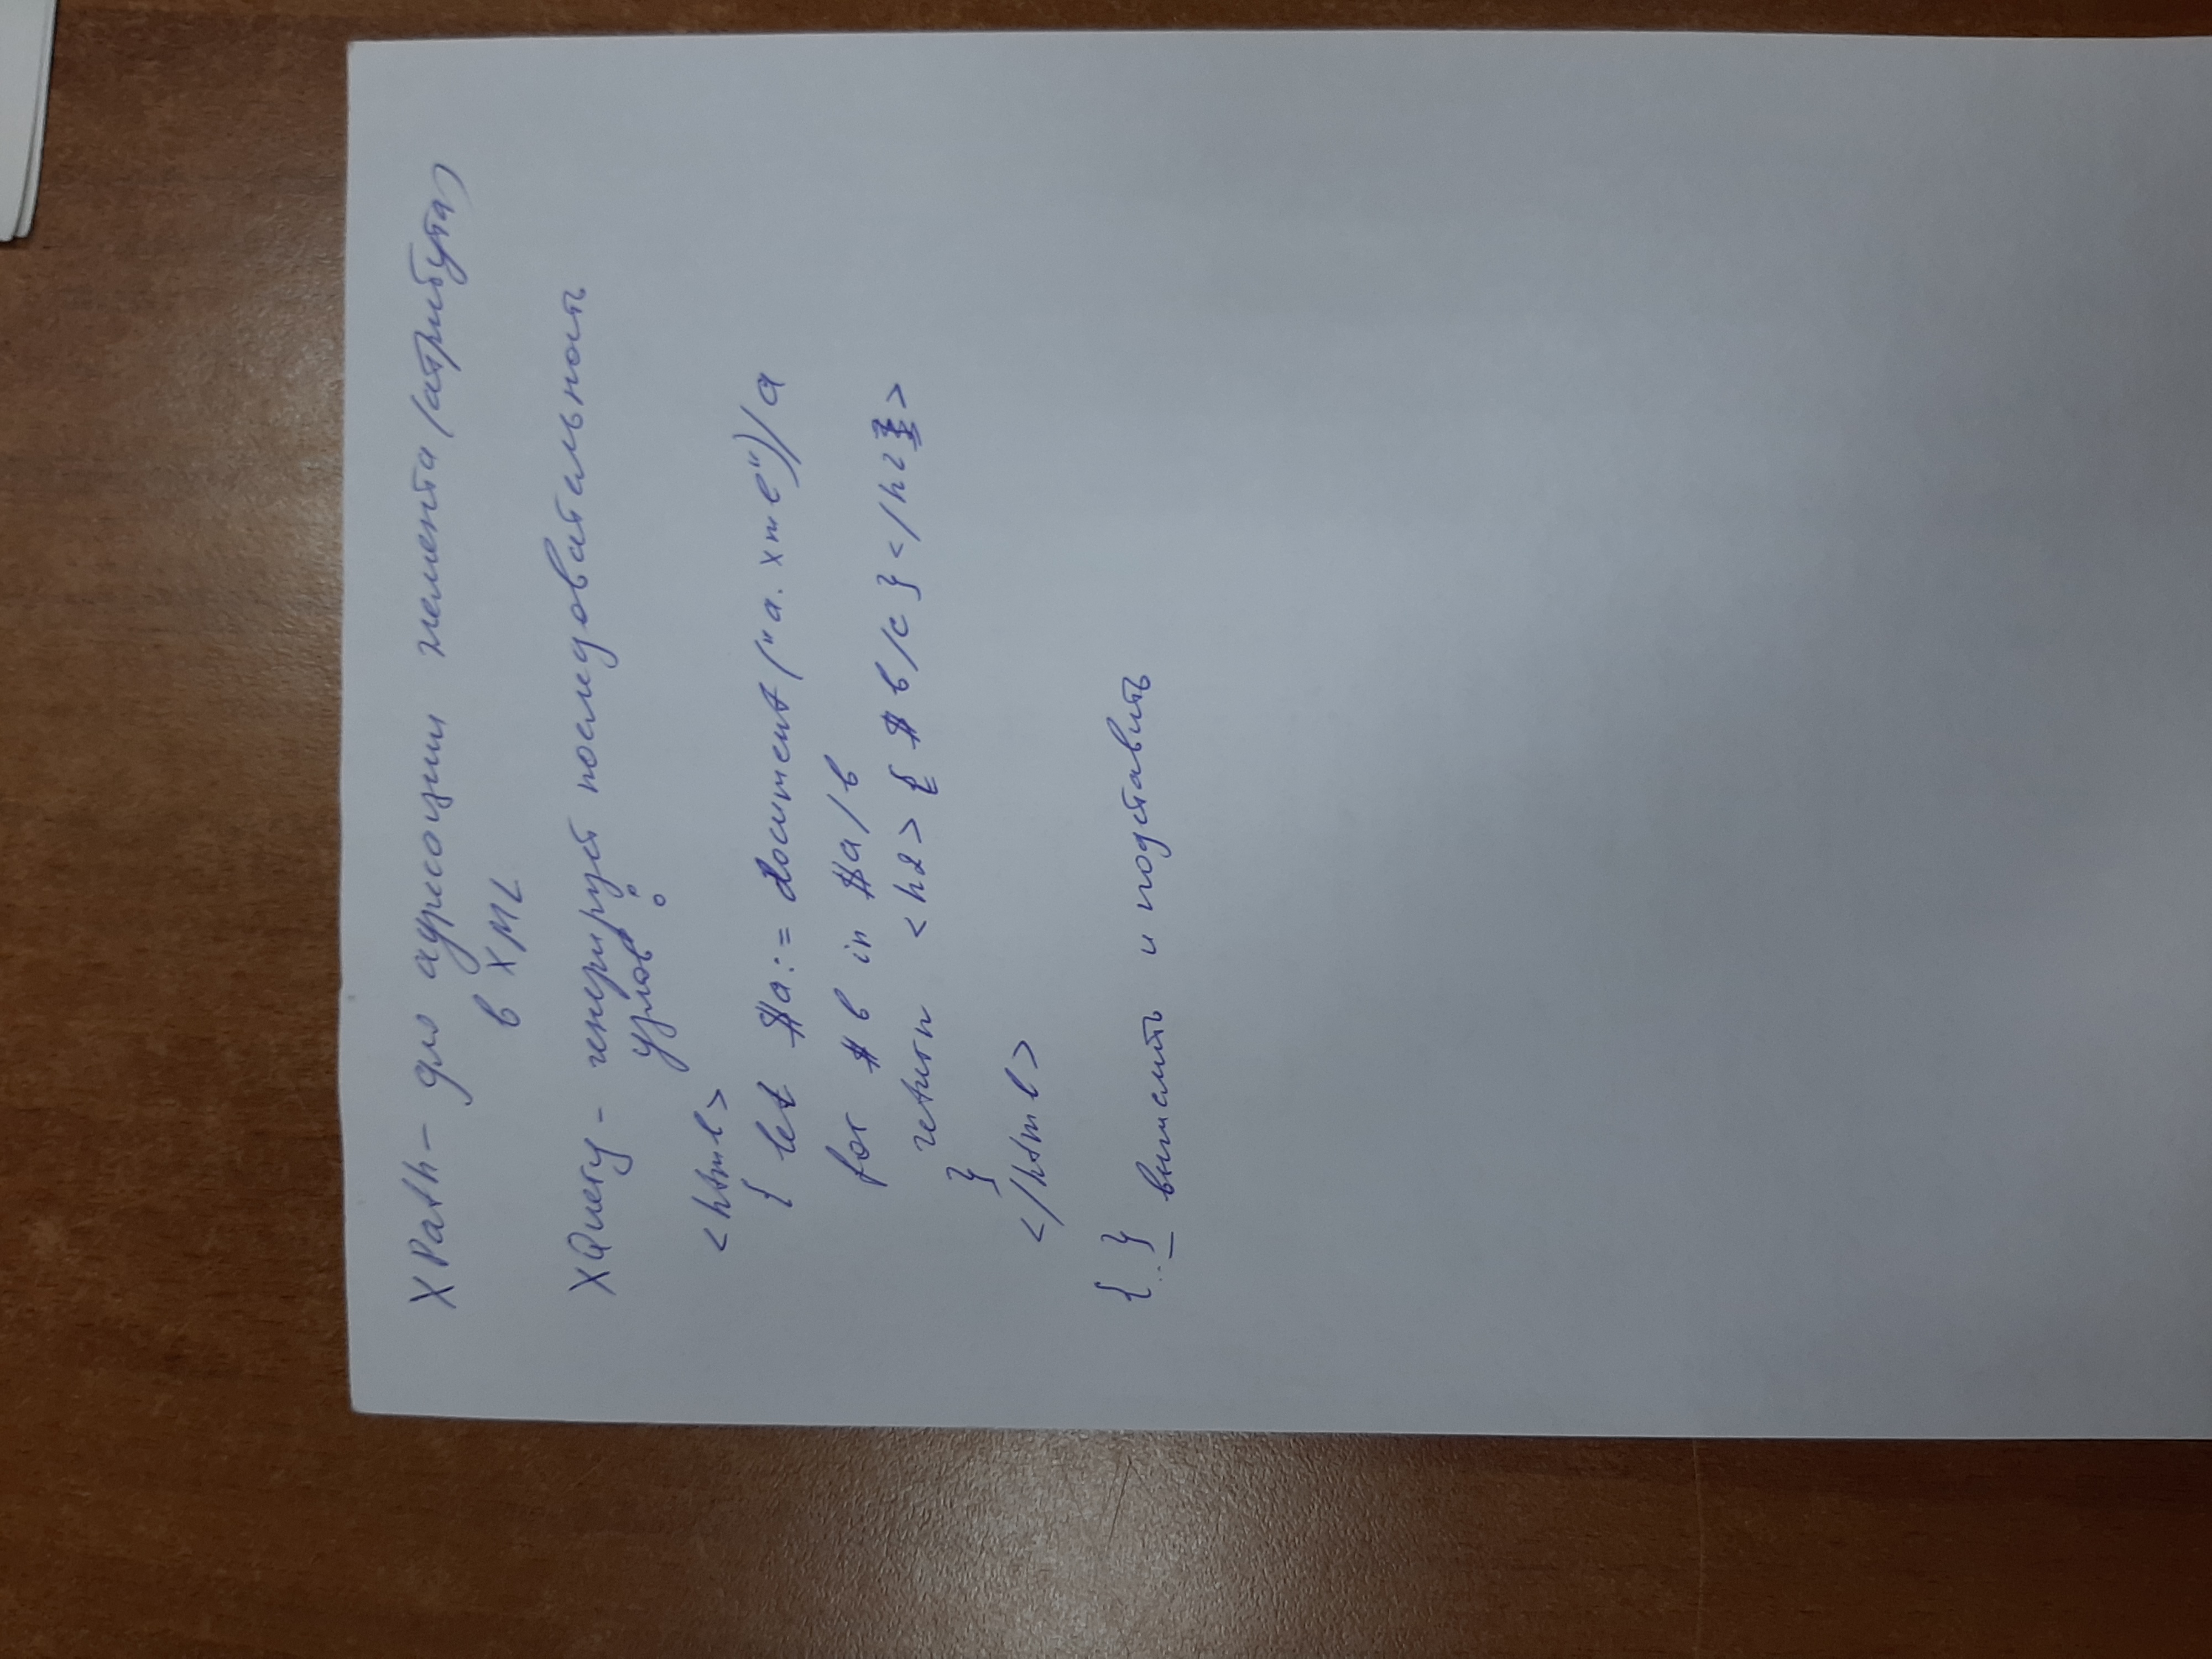 XPath – для адресации элемента (атрибута)
в XML
XQuery – генерирует последовательность
узлов :
<html>
{ let $a := document ("a.xml")/a
for $b in $a/b
return <h2> { $b/c } </h2>
}
</html>
{..} – вычислить и подставить